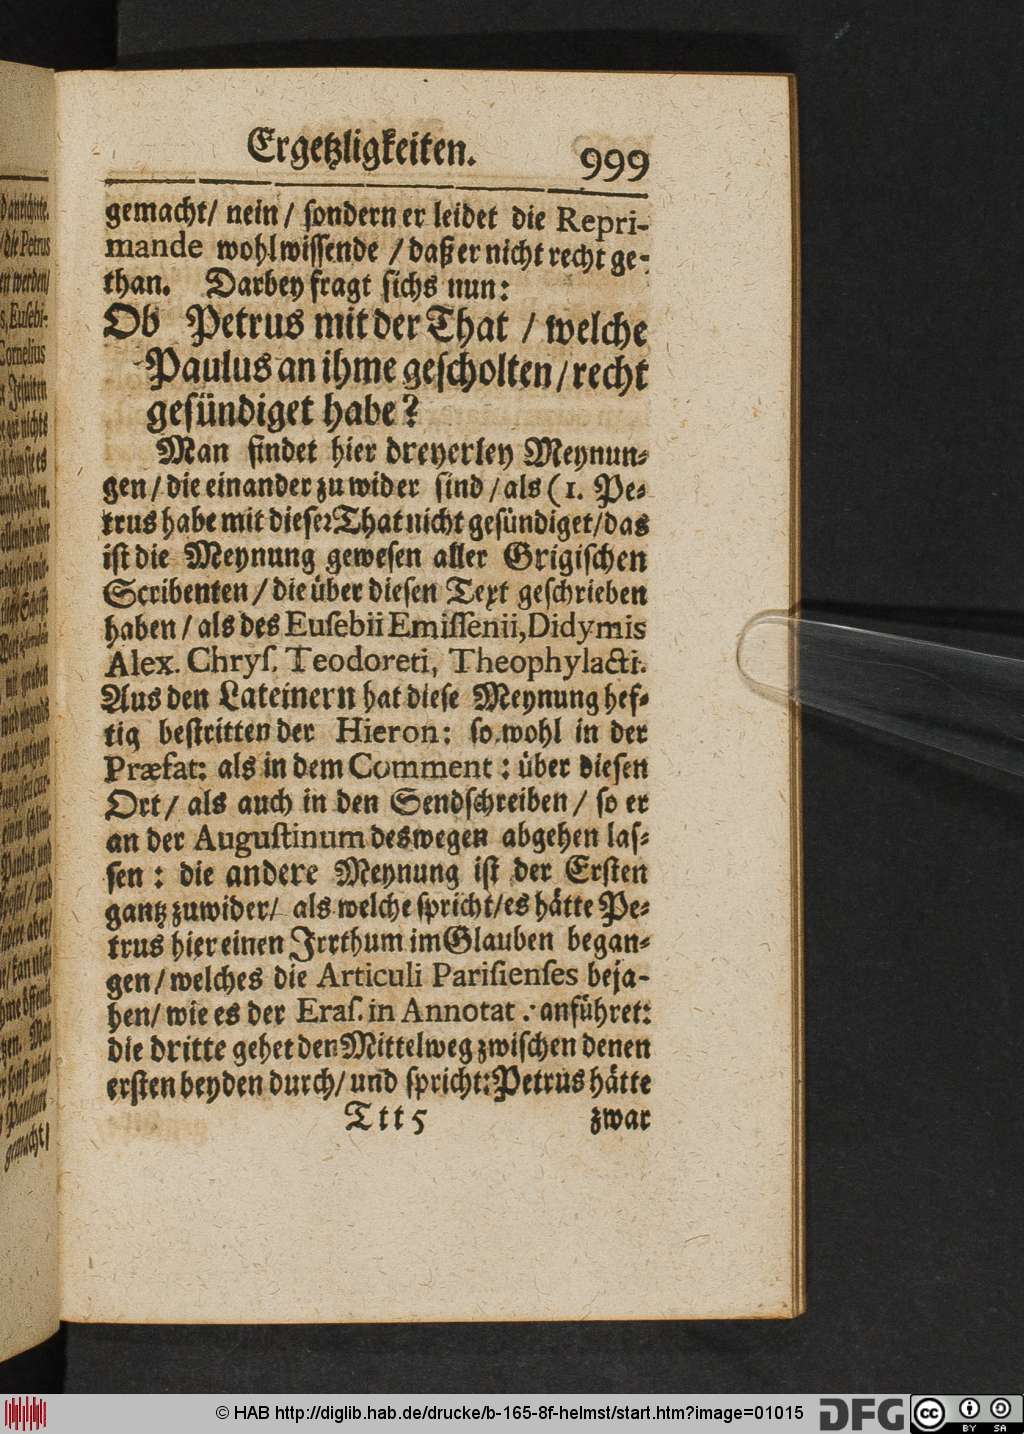 Ergetzligkeiten. 999
gemacht/ nein/ sondern er leidet die Repri-
mande wohlwissende / daß er nicht recht ge-
than. Darbey fragt sichs nun:
Ob Petrus mit der That / welche
Paulus an ihme gescholten/ recht
gesündiget habe?
Man findet hier dreyerley Meynun-
gen/ die einander zu wider sind / als (1. Pe-
trus habe mit dieser That nicht gesündiget/ das
ist die Meynung gewesen aller Grigischen
Scribenten / die über diesen Text geschrieben
haben / als des Eusebii Emissenii, Didymis
Alex. Chrys. Teodoreti, Theophylacti.
Aus den Lateinern hat diese Meynung hef-
tig bestritten der Hieron: so wohl in der
Præfat: als in dem Comment: über diesen
Ort/ als auch in den Sendschreiben/ so er
an der Augustinum deswegen abgehen las-
sen: die andere Meynung ist der Ersten
gantz zuwider/ als welche spricht/ es hätte Pe-
trus hier einen Irrthum im Glauben began-
gen/ welches die Articuli Parisienses beja-
hen/ wie es der Eras. in Annotat.: anführet:
die dritte gehet den Mittelweg zwischen denen
ersten beyden durch/ und spricht: Petrus hätte
Ttt 5 zwar
© HAB http://diglib.hab.de/drucke/b-165-8f-helmst/start.htm?image=01015
DFG
cc BY SA